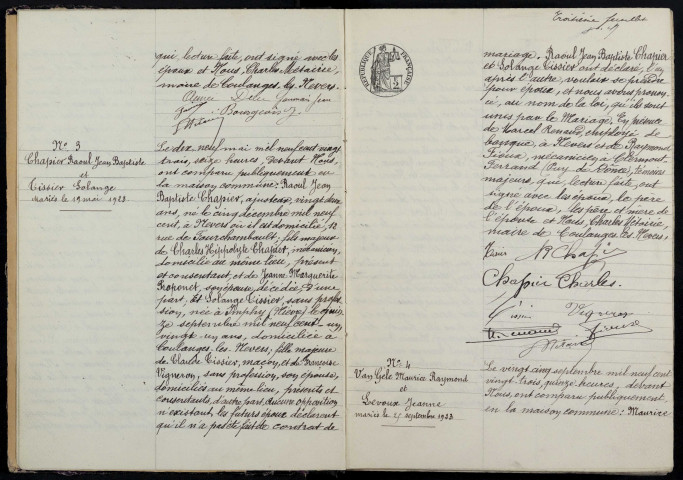 qui, lecture faite, ont signé avec les
époux et Nous, Charles Métairie,
maire de Coulanges les Nevers.
Bourgeois
N° 3
Chapier Raoul Jean Baptiste
et
Tissier Solange
mariés le 19 mai 1923
Le dix neuf mai mil neuf cent vingt
trois, seize heures, devant Nous,
ont comparu publiquement en
la maison commune : Raoul Jean
Baptiste Chapier, ajusteur, vingt deux
ans, né le cinq décembre mil neuf
cent, à Nevers où il est domicilié, 12
rue de Fourchambault, fils majeur
de Charles Hippolyte Chapier,
domicilié au même lieu, présent
et consentant, et de Jeanne Marguerite
son épouse, décédée, d'une
part, Et Solange Tissier, sans profes-
sion, née à Imphy (Nièvre) le quin-
ze septembre mil neuf cent un,
vingt un ans, domiciliée à
Coulanges les Nevers, fille majeure
de Claude Tissier, maçon, et de Françoise
Vigneron, sans profession, son épouse,
domiciliés au même lieu, présents et
consentants, d'autre part, aucune opposition
n'existant, les futurs époux déclarent
qu'il n'a pas été fait de contrat de
Troisième feuillet
RÉPUBLIQUE FRANÇAISE
mariage. Raoul Jean Baptiste Chapier
et Solange Tissier ont déclaré, l'un
après l'autre, vouloir se prendre
pour époux, et nous avons pronon-
cé, au nom de la loi, qu'ils sont
unis par le Mariage, En présence
de Marcel Renaud, employé de
banque, à Nevers et de Raymond
Fieux, mécanicien à Clermont
Ferrand (Puy de Dôme), témoins
majeurs, qui, lecture faite, ont
signé avec les époux, le père
de l'époux, les père et mère de
l'épouse et Nous, Charles Métairie,
maire de Coulanges les Nevers.
Tissier R Chapier
Chapier Charles.
Tissier Vigneron
Renaud Fieux
N° 4
Van Gele Maurice Raymond
et
Levoux Jeanne
mariés le 25 septembre 1923
Le vingt cinq septembre mil neuf cent
vingt trois, quinze heures, devant
Nous, ont comparu publiquement,
en la maison commune : Maurice